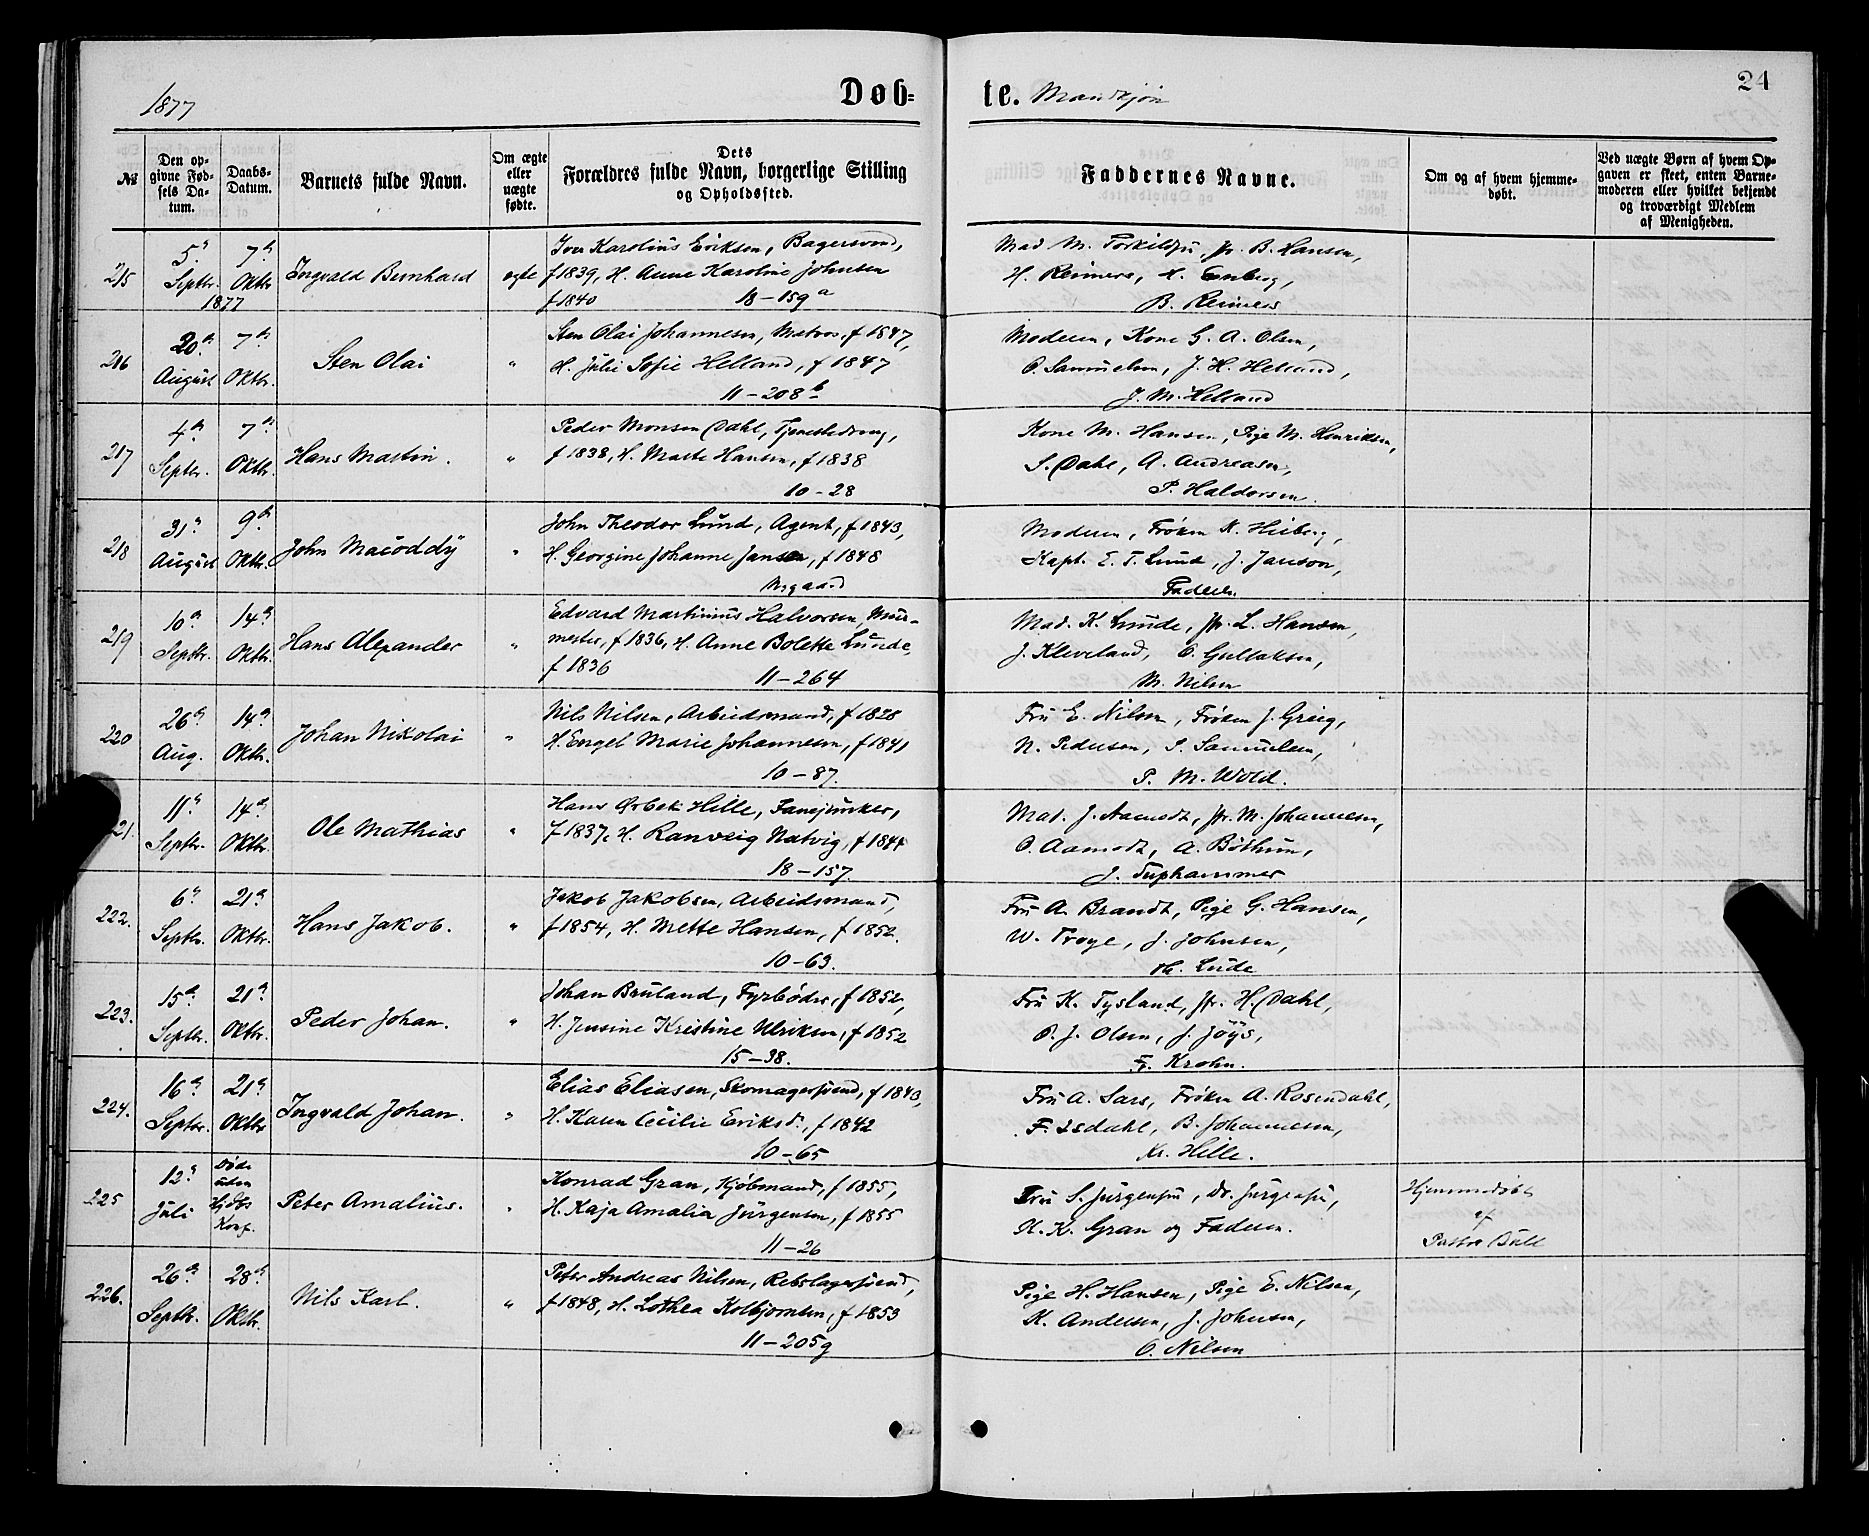 1877
Døb=
te. Mandkjøn
24
№
Den opgivne Fødsels Datum.
Daabs-Datum.
Barnets fulde Navn.
Om ægte eller uægte fødte.
Dets Forældres fulde Navn, borgerlige Stilling og Opholdssted.
Faddernes Navne.
Om og af hvem hjemmedøbt.
Ved uægte Børn af hvem Opgaven er skeet, enten Barnemoderen eller hvilket bekjendt og troværdigt Medlem af Menigheden.
215 5. Septbr. 1877 7 Oktbr Ingvald Bernhard egte
Iver Karolius Eriksen, Bagersvend,
f 1839, H. Anne Karoline Johnsen
f 1840 18-159a
Mad M. Torkildsen, Jfr. B. Hansen,
H. Reimers, H. Enberg,
B. Reimers
216 20 August 7 Oktbr. Sten Olai "
Sten Olai Johannesen, Matros f 1847,
H. Julie Sofie Helland, f 1847
11-208b
Moderen, Kone G. A. Olsen,
O. Samuelsen, J. H. Helland,
J. M. Helland
217 4 Septbr. 7 Oktbr. Hans Martin. "
Peder Monsen Dahl, Tjenestedreng,
f 1838, H. Marte Hansen, f 1838
10-28
Kone M. Hansen, Pige M. Henriksen,
S. Dahl, A. Andreasen,
P. Haldorsen.
218 31 August 9 Oktbr. John Macoddy "
John Theodor Lund, Agent, f 1843,
H. Georgine Johanne Jansen, f 1848
Nygaard
Moderen, Frøken K. Heiberg,
Kapt. E. T. Lund, J. Janson,
Faderen.
219 10 Septbr. 14 Oktbr. Hans Alexander "
Edvard Martinius Halvorsen, Mur-
mester, f 1836, H. Anne Bolette Lunde,
f 1836 11-264
Mad. K. Lunde, Jfr. L. Hansen,
J. Kleveland, O. Gullaksen,
M. Nilsen
220 26 Aug. 14 Oktbr. Johan Nikolai "
Nils Nilsen, Arbeidsmand, f 1828
H. Engel Marie Johannesen, f 1841
10-87.
Fru E. Nilsen, Frøken J. Grieg,
N. Pedersen, S. Samuelsen,
P. M. Wold.
21. 11 Septbr. 14 Oktbr. Ole Mathias "
Hans Ørbek Hille, Fanejunker,
f 1837, H. Ranveig Natvig, f 1844
18-157.
Mad. J. Aamodt, Jfr. M. Johannesen,
O. Aamodt, A. Bøthun,
J. Tuphammer
222. 6 Septbr. 21 Oktbr. Hans Jakob. "
Jakob Jakobsen, Arbeidsmand,
f 1854, H. Mette Hansen, f 1852.
10-63.
Fru A. Brandt, Pige G. Hansen,
W. Troye, J. Johnsen,
223. 15 Septbr. 21 Oktbr. Peder Johan. "
Johan Bruland, Fyrbøder, f 1852,
H. Jensine Kristine Ulriksen, f 1852
15-38.
Fru K. Tysland, Jfr. H. Dahl,
O. J. Olsen, J. Jöys,
Fr. Krohn.
224. 16 Septbr. 21 Oktbr Ingvald Johan. "
Elias Eliasen, Skomagersvend, f 1843,
H. Karen Cecilie Eriksd., f 1842
10-65
Fru A. Sars, Frøken A. Rosendahl,
F. Isdahl, B. Johannesen,
Kr. Hille.
225 12 Juli Døde uden Hjdbs Konf. Peter Amalius. "
Konrad Gran, Kjøbmand, f 1855,
H. Kaja Amalia Jürgensen, f 1855
11-26
Fru S. Jürgensen, Dr. Jürgensen,
H. K. Gran og Faderen.
Hjemmedøbt
af
Pastor Bull
226. 26 Septbr. 28 Oktbr. Nils Karl. "
Peter Andreas Nilsen, Rebslagersvend,
f 1848, H. Lothea Kolbjørnsen, f 1853
11-205g
Pige H. Hansen, Pige E. Nilsen,
K. Andersen, J. Johnsen,
O. Nilsen